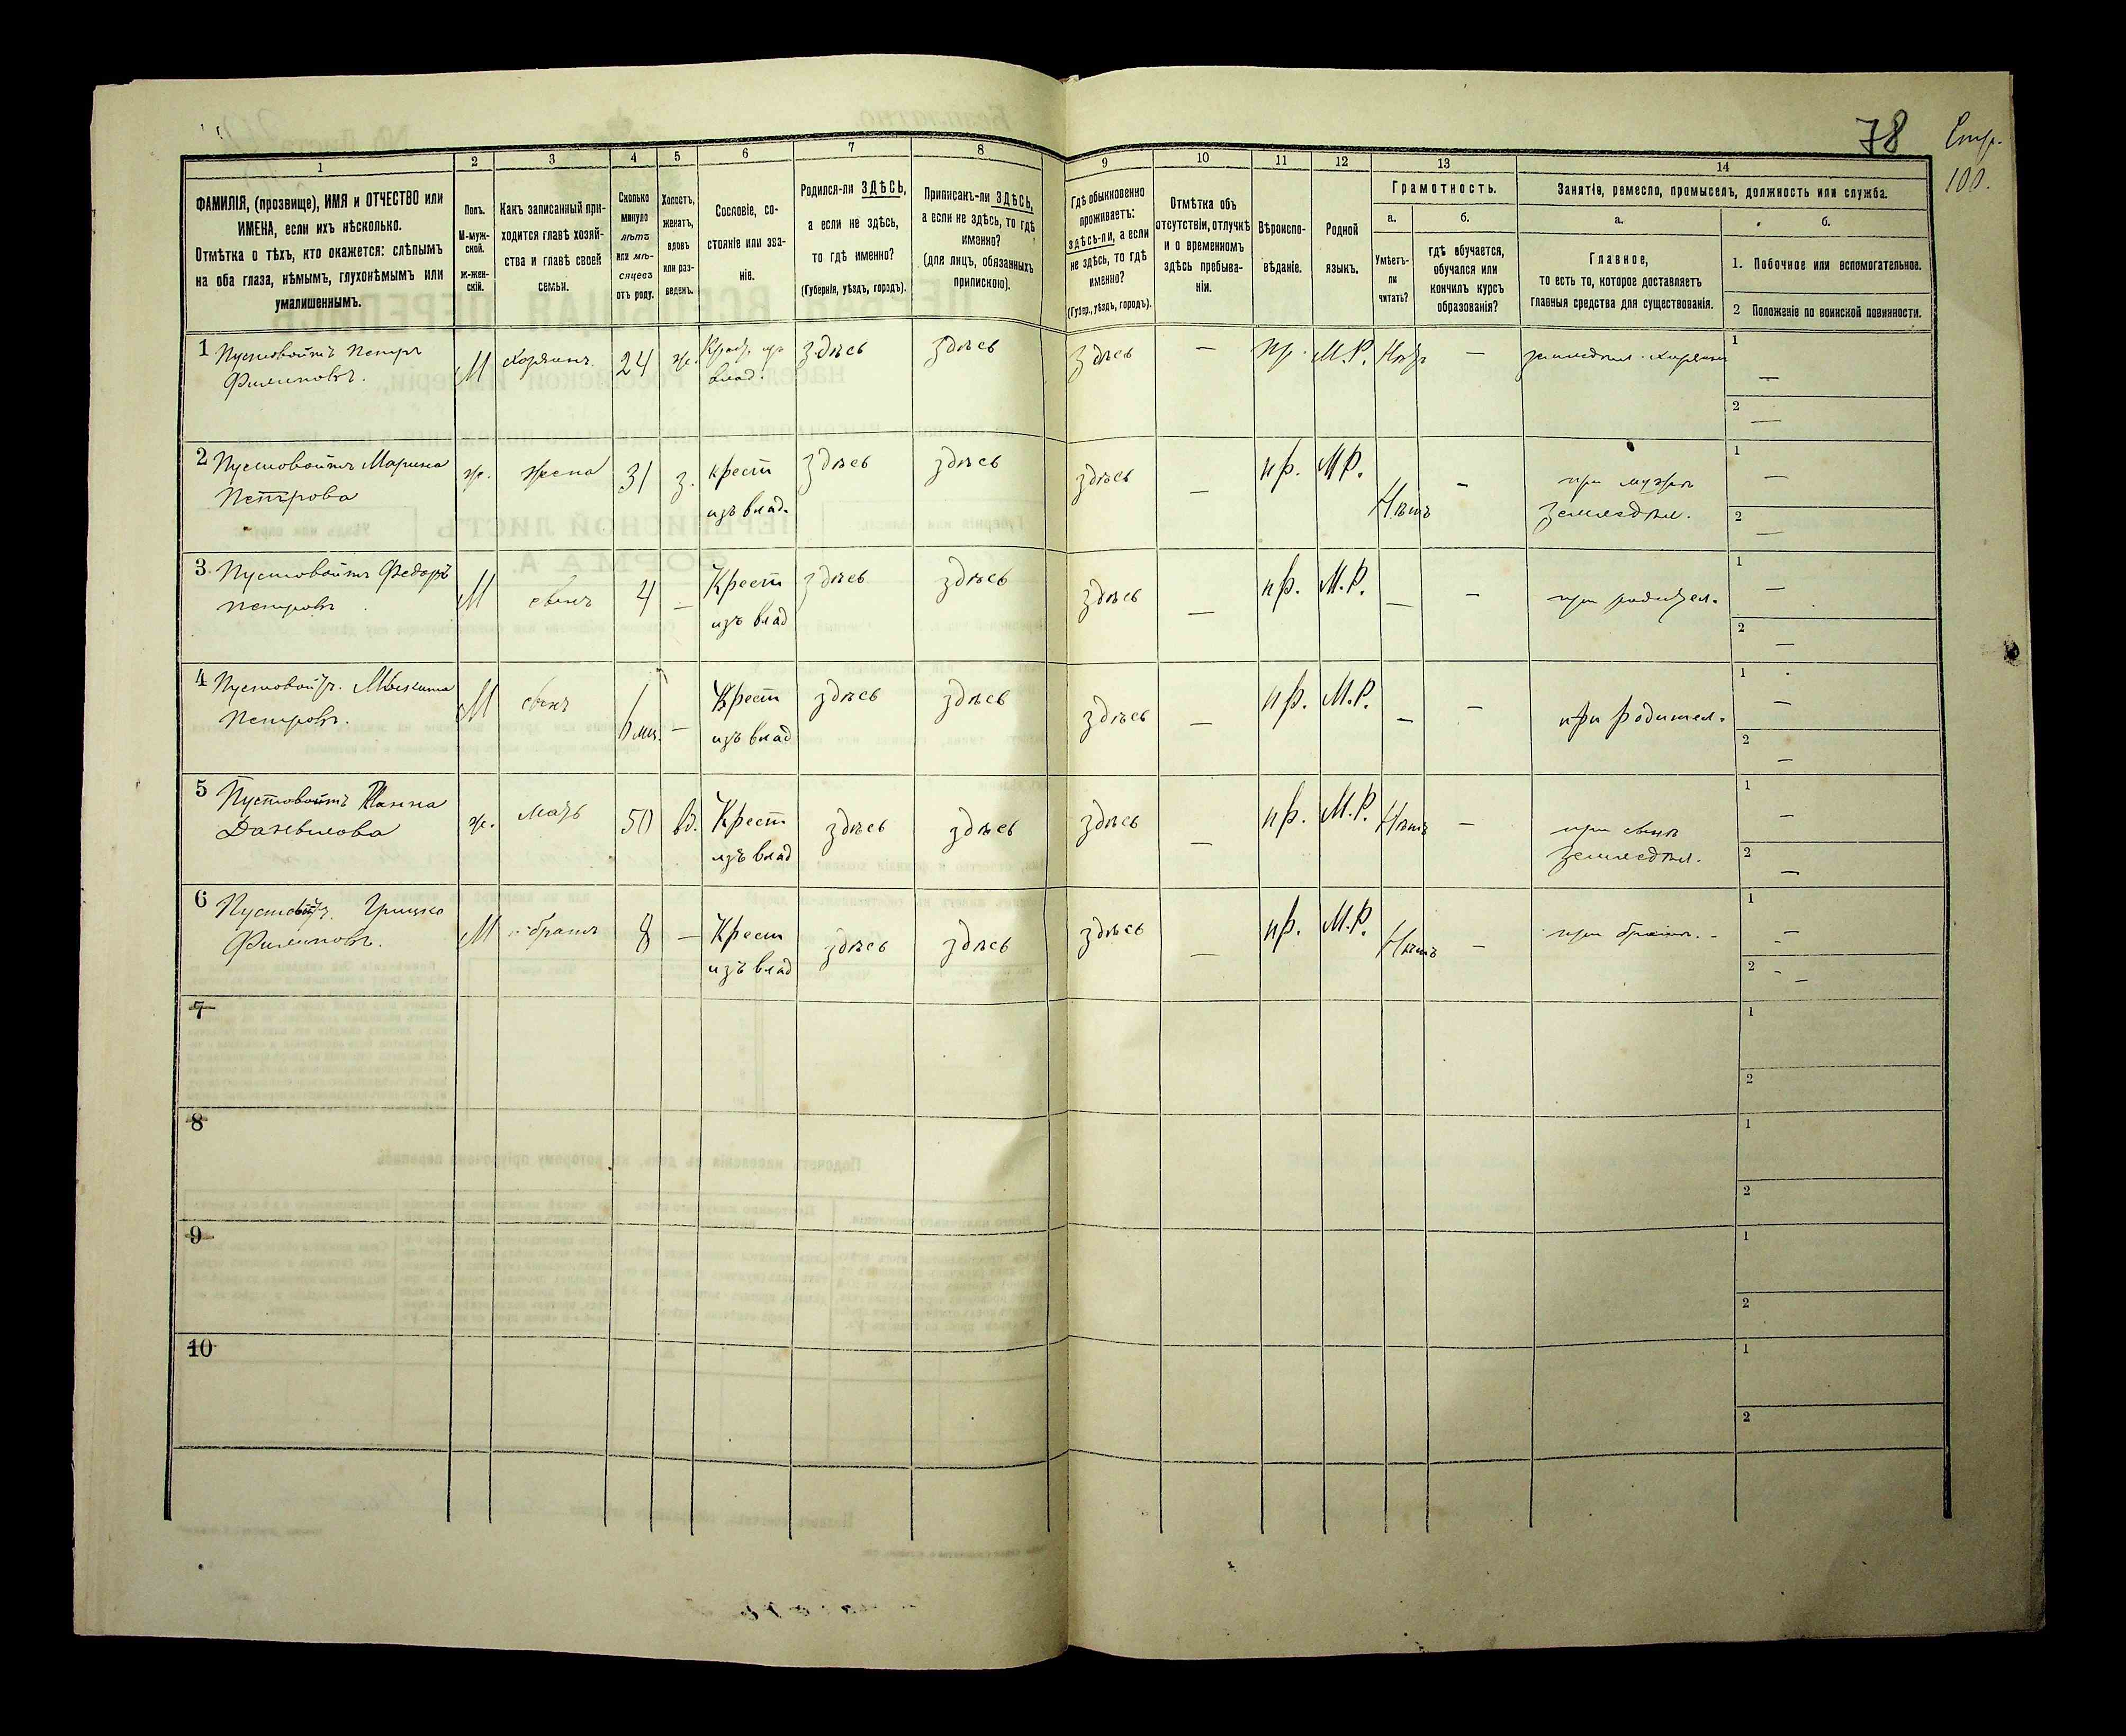 78 Стр.
100.
1 2 3 4 5 6 7 8 9 10 11 12 13 14
ФАМИЛІЯ, (прозвище), ИМЯ и ОТЧЕСТВО или
ИМЕНА, если ихъ нѣсколько.
Отмѣтка о тѣхъ, кто окажется: слѣпымъ
на оба глаза, нѣмымъ, глухонѣмымъ или
умалишеннымъ.
Полъ.
М-муж-
ской.
ж-жен-
скій.
Какъ записанный при-
ходится главѣ хозяй-
ства и главѣ своей
семьи.
Сколько
минуло
лѣтъ
или мѣ-
сяцевъ
отъ роду.
Холостъ,
женатъ,
вдовъ
или раз-
веденъ.
Сословіе, со-
стояніе или зва-
ніе.
Родился-ли ЗДѢСЬ,
а если не здѣсь,
то гдѣ именно?
(Губернія, уѣздъ, городъ).
Приписанъ-ли ЗДѢСЬ,
а если не здѣсь, то гдѣ
именно?
(для лицъ, обязанныхъ
припискою).
Гдѣ обыкновенно
проживаетъ:
здѣсь-ли, а если
не здѣсь, то гдѣ
именно?
(Губер., уѣздъ, городъ).
Отмѣтка объ
отсутствіи, отлучкѣ
и о временномъ
здѣсь пребыва-
ніи.
Вѣроиспо-
вѣданіе.
Родной
языкъ.
Грамотность.
а.
Умѣетъ-
ли
читать?
б.
гдѣ обучается,
обучался или
кончилъ курсъ
образованія?
Занятіе, ремесло, промыселъ, должность или служба.
а.
Главное,
то есть то, которое доставляетъ
главныя средства для существованія.
б.
1. Побочное или вспомогательное.
2 Положеніе по воинской повинности.
1 Пустовойтъ Петръ М хозяинъ 24 ж. здѣсь здѣсь здѣсь — пр. М.Р. Нѣтъ — 1 —
Филиповъ. влад. 2 —
2 Пустовойтъ Марина ж. жена 31 з. крест здѣсь здѣсь здѣсь — пр. М.Р. Нѣтъ — при мужѣ 1 —
Петрова изъ влад. земледѣл. 2 —
3. Пустовойтъ Федоръ М сынъ 4 — Крест здѣсь здѣсь здѣсь — пр. М.Р. — — при родител. 1 —
Петровъ изъ влад 2 —
4 Пустовойтъ. М сынъ Крест здѣсь здѣсь здѣсь — пр. М.Р. — — при родител. 1 —
Петровъ. 6 мц. — изъ влад 2 —
5 Пустовойтъ Ганна ж. мать 50 вд. Крест здѣсь здѣсь здѣсь — пр. М.Р. Нѣтъ — при сынѣ 1 —
Данилова изъ влад земледѣл. 2 —
6 Грицко М братъ 8 — Крест здѣсь здѣсь здѣсь — пр. М.Р. Нѣтъ — при братѣ. 1 —
Филиповъ. изъ влад 2 —
7 1
2
8 1
2
9 1
2
10 1
2